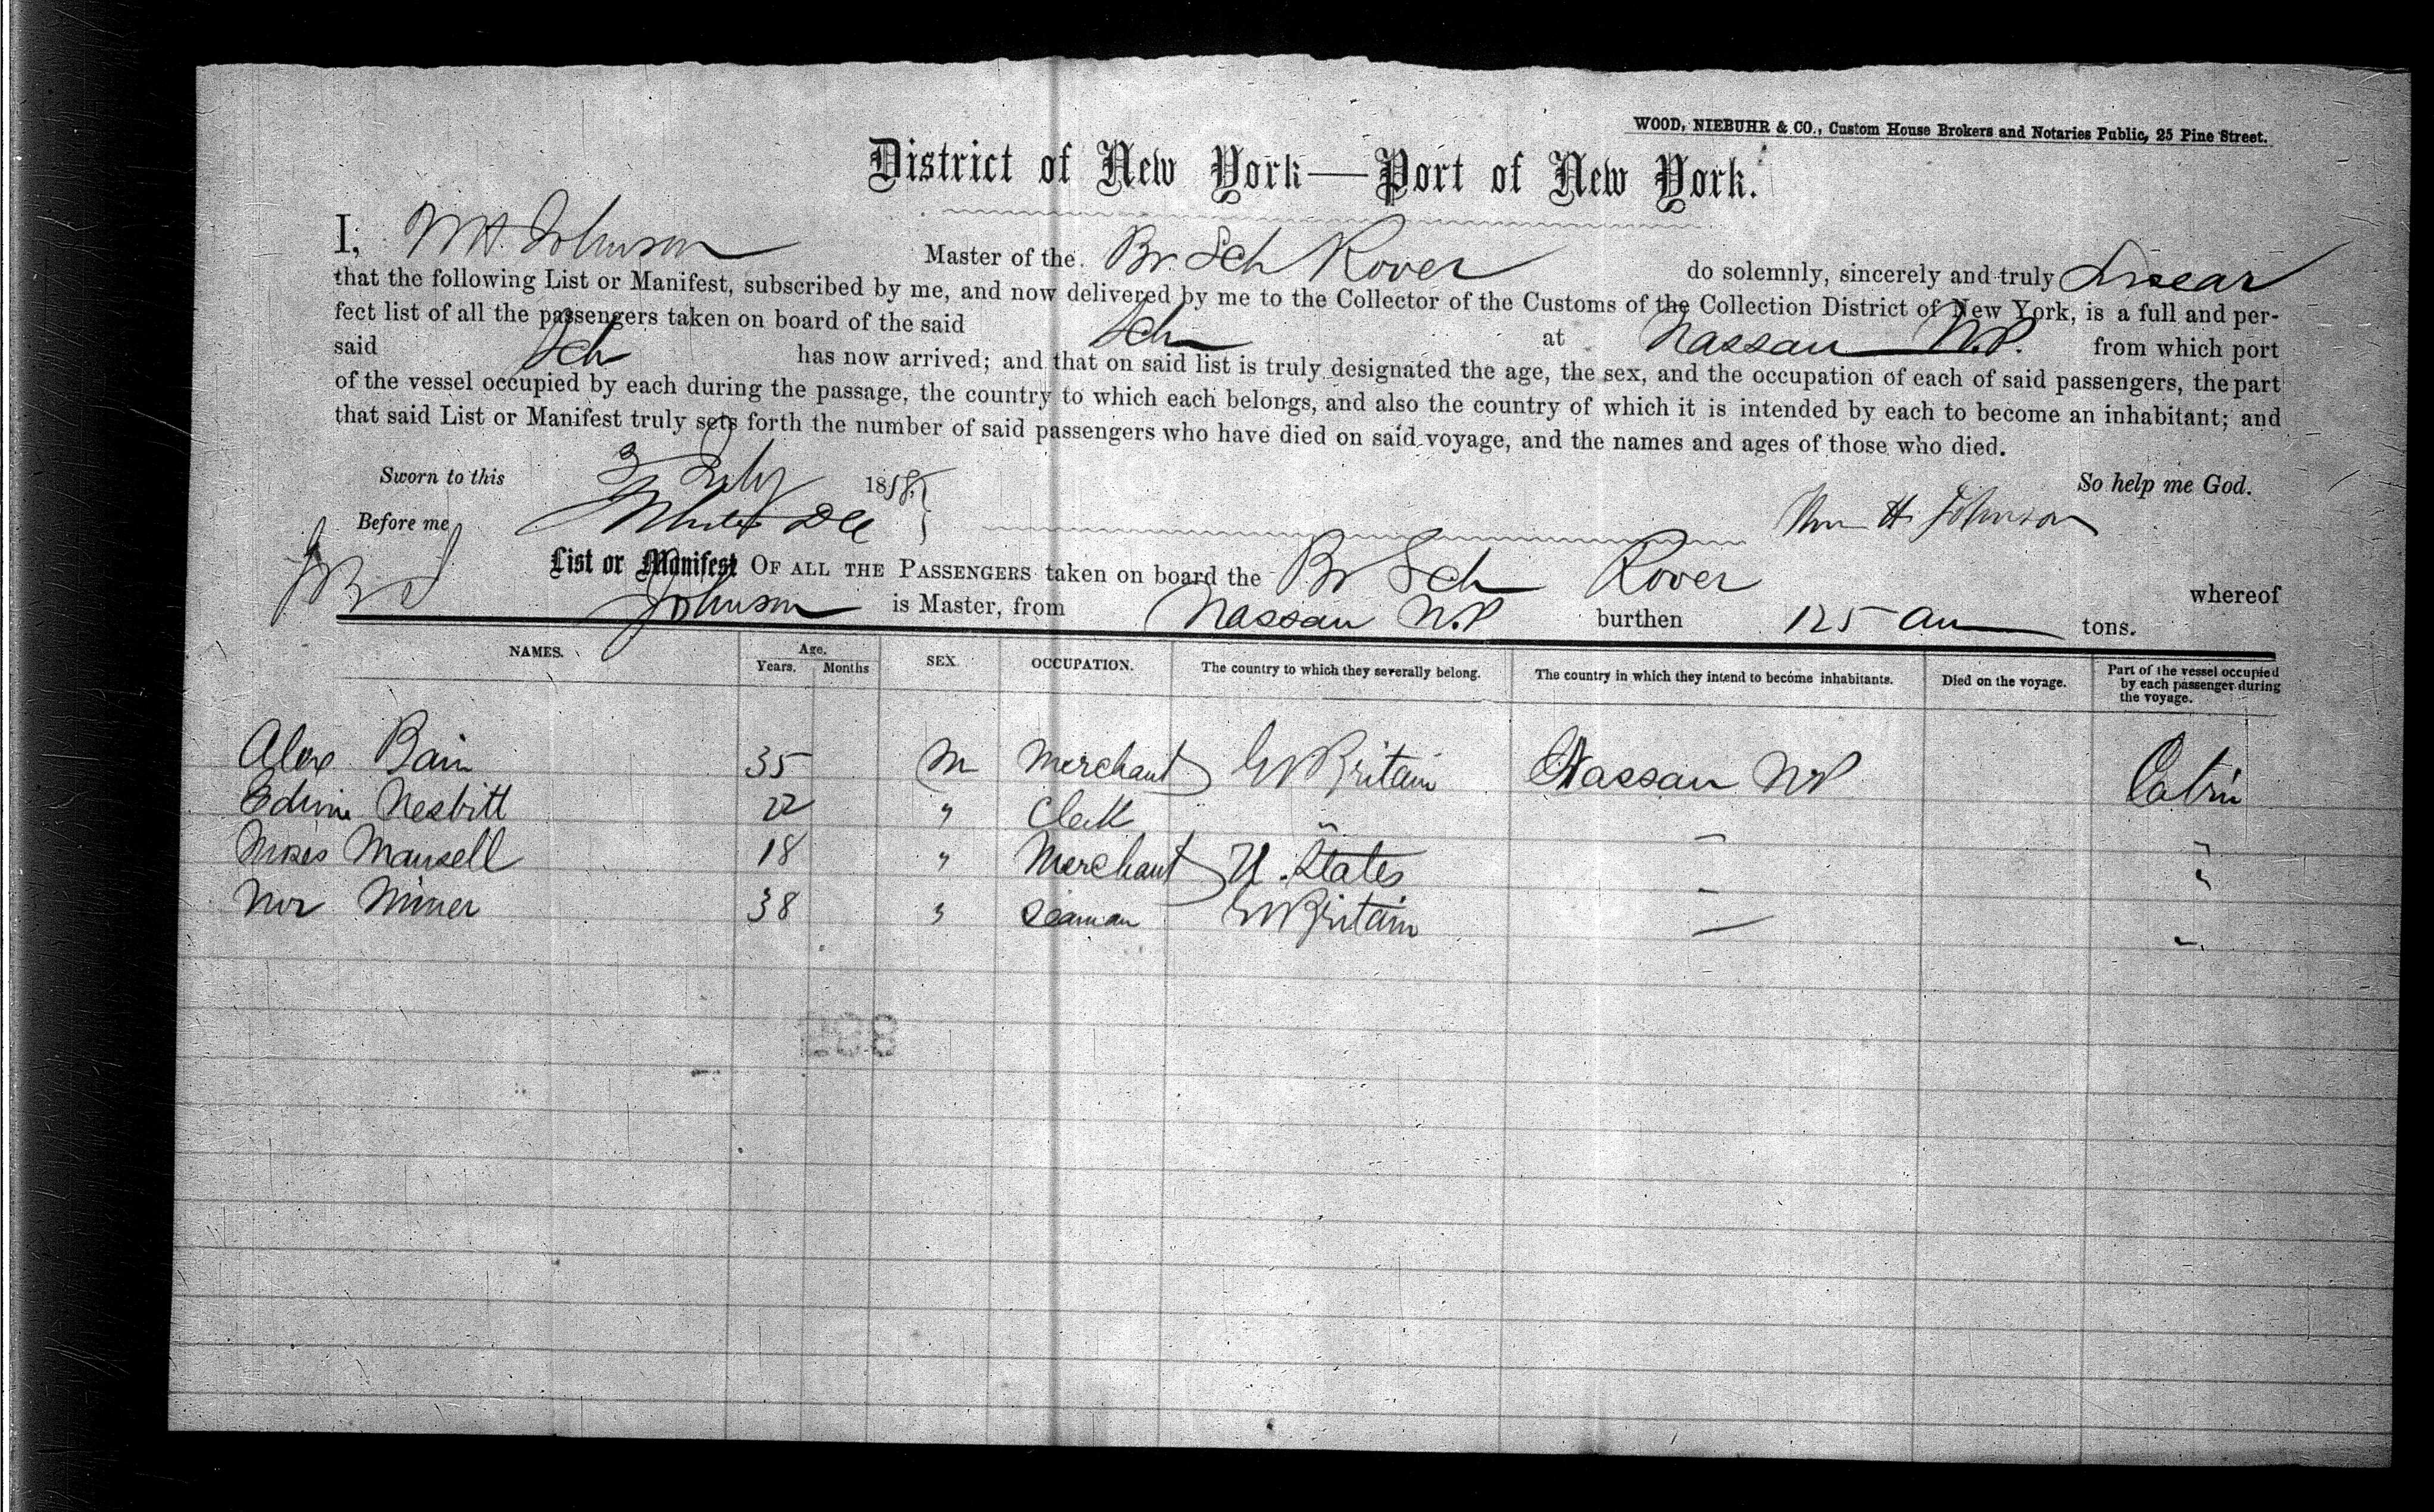 WOOD, NIEBUHR & CO., Custom House Brokers and Notaries Public, 25 Pine Street.
District of New York—Port of New York.
I, Wm H. Johnson Master of the Br. Sch Rover do solemnly, sincerely and truly Swear
that the following List or Manifest, subscribed by me, and now delivered by me to the Collector of the Customs of the Collection District of New York, is a full and per-
fect list of all the passengers taken on board of the said Sch at Nassau N.P. from which port
said Sch has now arrived; and that on said list is truly designated the age, the sex, and the occupation of each of said passengers, the part
of the vessel occupied by each during the passage, the country to which each belongs, and also the country of which it is intended by each to become an inhabitant; and
that said List or Manifest truly sets forth the number of said passengers who have died on said voyage, and the names and ages of those who died.
Sworn to this 3 July 1858. So help me God.
Before me Wm H. Johnson
List or Manifest OF ALL THE PASSENGERS taken on board the Br Sch Rover whereof
Johnson is Master, from Nassau N.P burthen 125 tons.
NAMES. Age. Years. Months SEX. OCCUPATION. The country to which they severally belong. The country in which they intend to become inhabitants. Died on the voyage. Part of the vessel occupied by each passenger during the voyage.
Alex Bain 35 M Merchant Gt Britain Nassau NP Cabin
Edwin Nesbitt 22 " Clerk " " "
Moses Mansell 18 " Merchant U. States " "
Miner 38 " Seaman Gt Britain " "